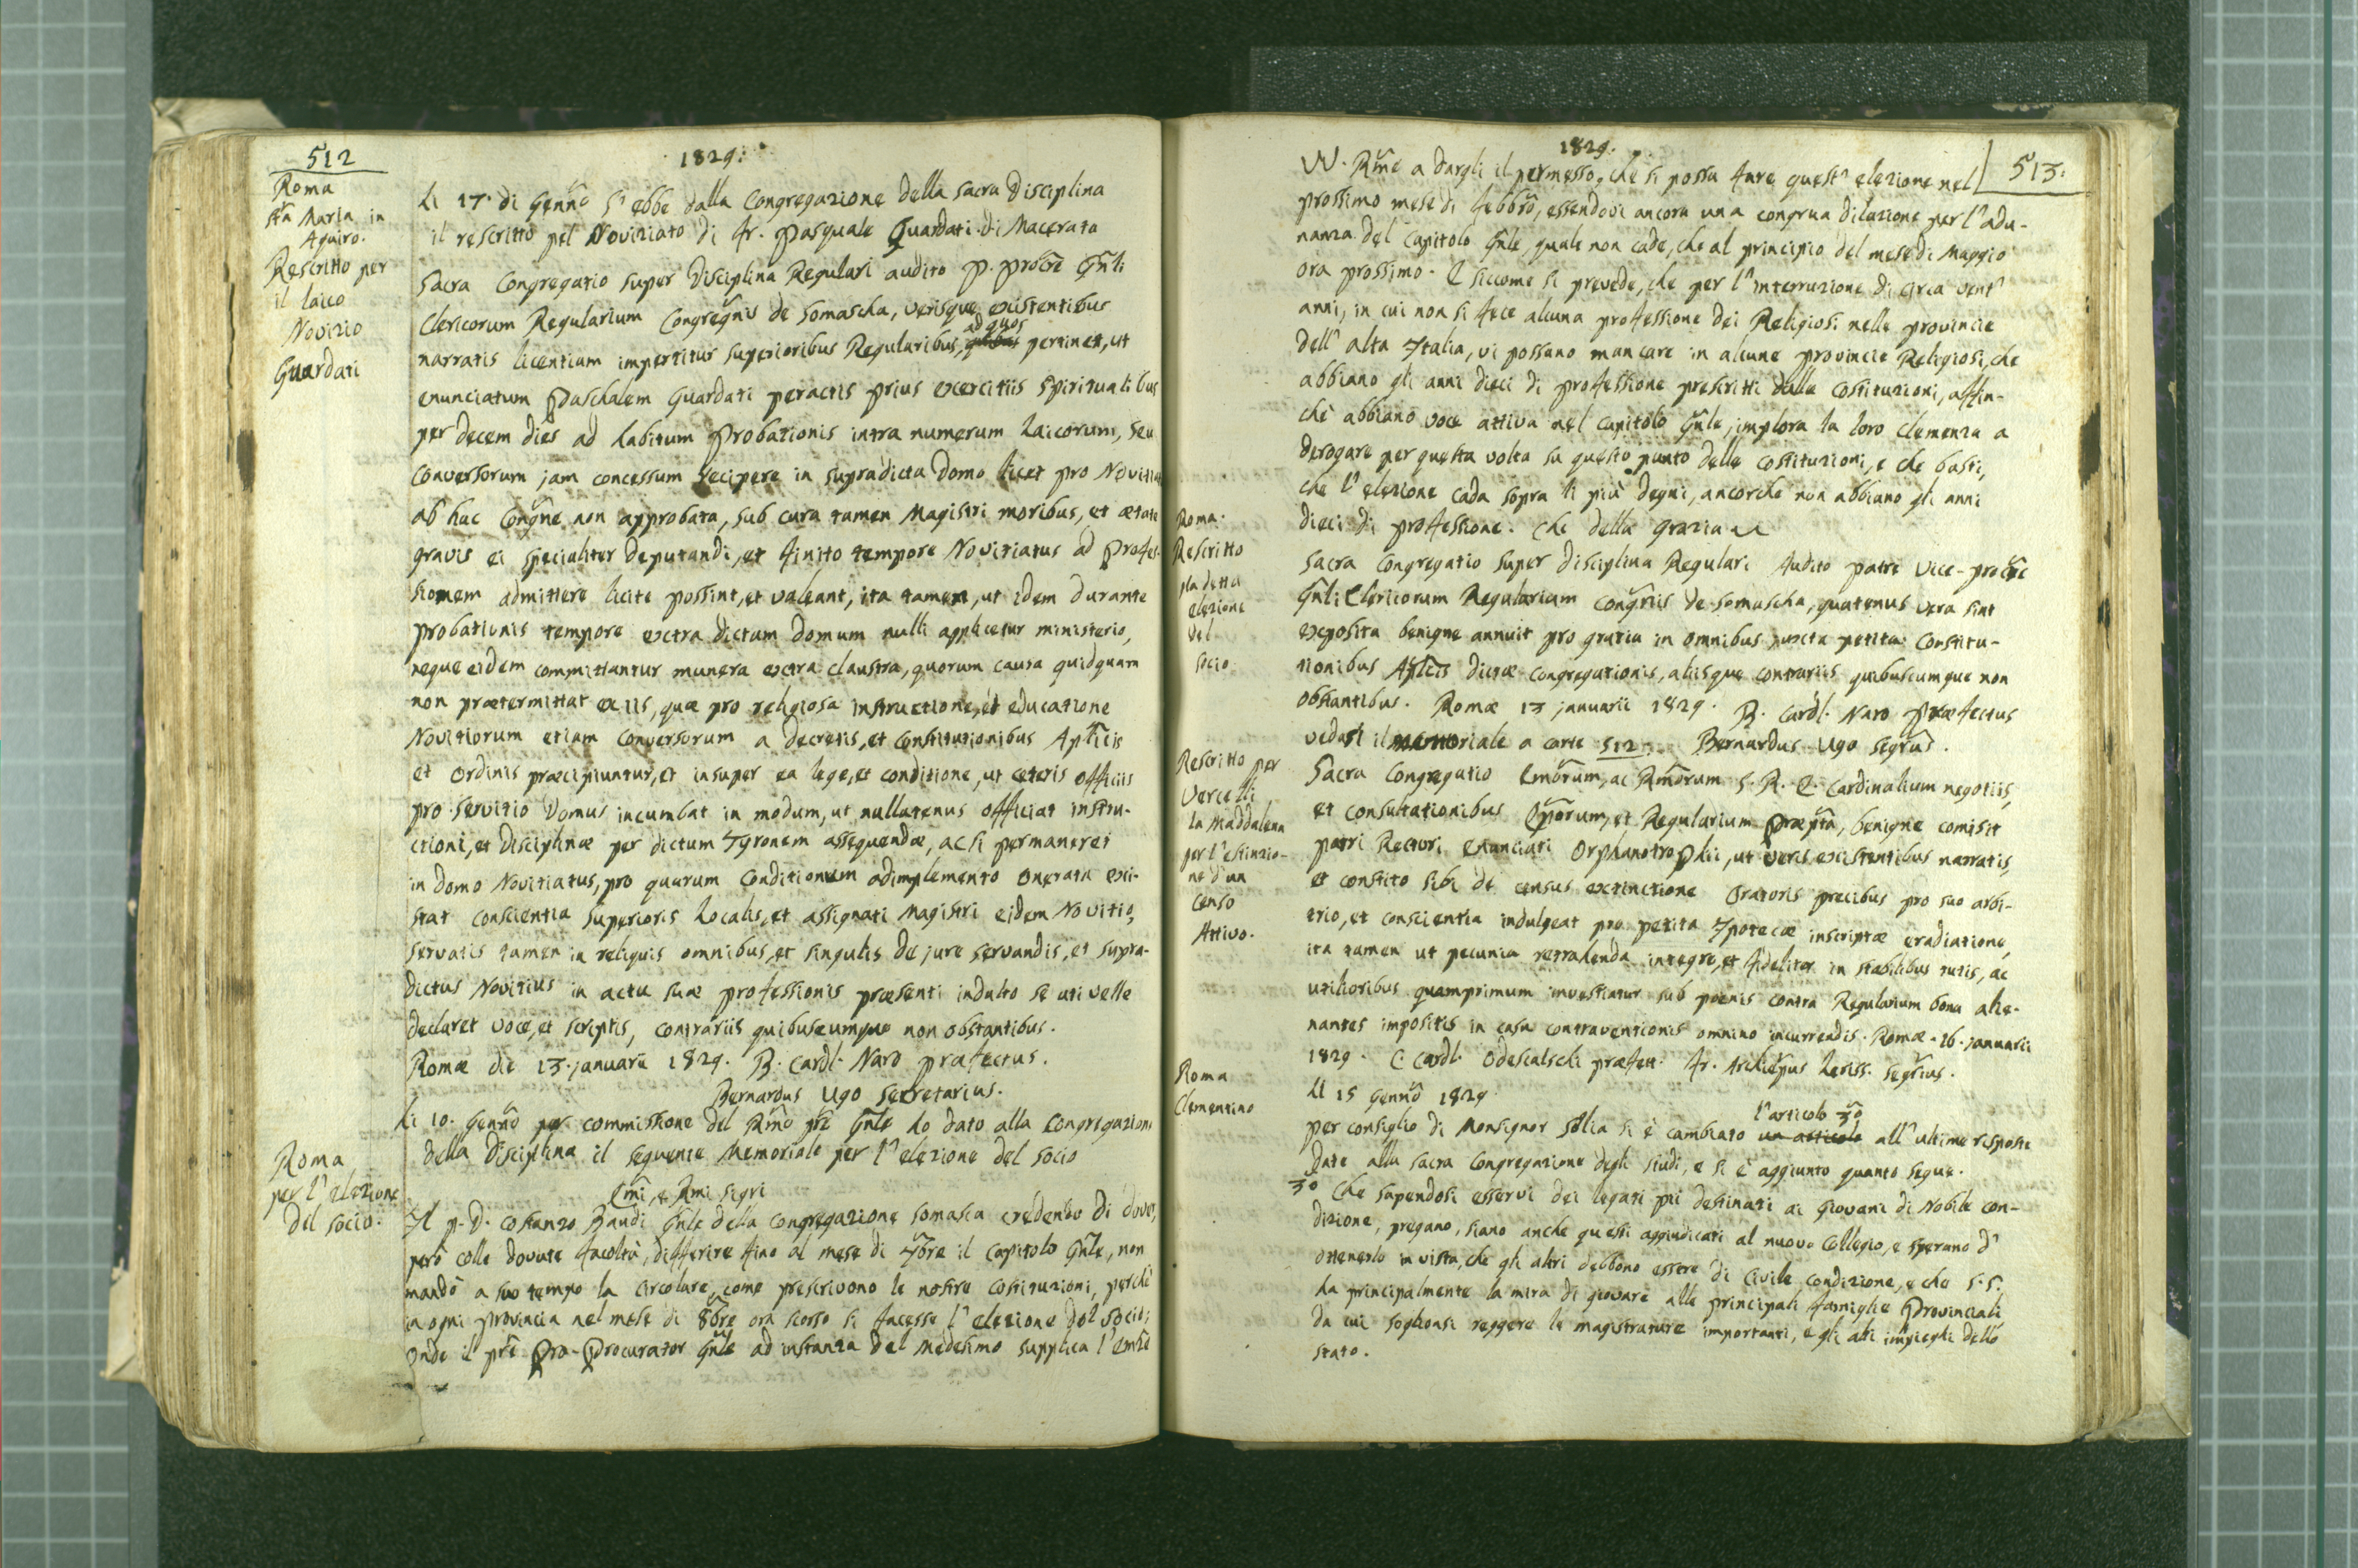 512
1829.
Roma
Sta Maria in
Aquiro.
Rescritto per
il laico
Novizio
Guardati
Li 17. di Genno s' ebbe dalla Congregazione della sacra Disciplina
il rescritto pel Noviziato di Fr. Pasquale Guardati di Macerata
Sacra Congregatio super Disciplina Regulari audito P. Procre Gnli
Clericorum Regularium Congregnis de Somascha, verisque existentibus
narratis licentiam impertitur superioribus Regularibus, ad quos pertinet, ut
enunciatum Paschalem Guardati peractis prius exercitiis spiritualibus
per decem dies ad habitum Probationis intra numerum Laicorum, seu
Conversorum jam concessum recipere in supradicta Domo licet pro Novitia
ab hac Congne non approbata, sub cura tamen Magistri moribus, et ætate
gravis ei specialiter deputandi, et finito tempore Novitiatus ad Profes-
sionem admittere licite possint, et valeant, ita tamen, ut idem durante
probationis tempore extra dictam Domum nulli applicetur ministerio,
neque eidem committantur munera extra claustra, quorum causa quidquam
non prætermittat ex iis, quæ pro religiosa instructione, et educatione
Novitiorum etiam Conversorum a decretis, et Constitutionibus Aplicis
et Ordinis præcipiuntur, et insuper ea lege, et conditione, ut ceteris officiis
pro servitio Domus incumbat in modum, ut nullatenus officiat instru-
ctioni, et Disciplinæ per dictum Tyronem assequendæ, ac si permaneret
in domo Novitiatus, pro quarum Conditionum adimplemento onerata exi-
stat conscientia superioris localis, et assignati Magistri eidem Novitio,
servatis tamen in reliquis omnibus, et singulis de jure servandis, et supra-
dictus Novitius in actu suæ professionis præsenti indulto se uti velle
declaret voce, et scriptis, contrariis quibuscumque non obstantibus.
Romæ die 13. januarii 1829. B. Cardl. Naro præfectus.
Bernardus Ugo Secretarius.
Roma
per l' elezione
del socio.
Li 10. Genno per commissione del Rmo pre Gnle ho dato alla Congregazione
della Disciplina il seguente Memoriale per l' elezione del socio
Emi, e Rmi sigri
Il p. D. Costanzo Bandi Gnle della Congregazione somasca credendo di dover,
però colle dovute facoltà, differire fino al mese di 7bre il Capitolo Gnle, non
mandò a suo tempo la circolare, come prescrivono le nostre Costituzioni, perchè
in ogni provincia nel mese di 8bre ora scorso si facesse l' elezione del socio;
onde il pre Pro-Procurator Gnle ad instanza del medesimo supplica l' Emze
1829.
513.
VV. Rme a dargli il permesso, che si possa fare quest' elezione nel
prossimo mese di febbro, essendovi ancora una congrua dilazione per l' adu-
nanza del Capitolo Gnle, quale non cade, che al principio del mese di Maggio
ora prossimo. E siccome si prevede, che per l' interruzione di circa vent'
anni, in cui non si fece alcuna professione dei Religiosi nelle provincie
dell' alta Italia, vi possano mancare in alcune provincie Religiosi, che
abbiano gli anni dieci di professione prescritti dalle Costituzioni, affin-
chè abbiano voce attiva nel Capitolo Gnle, implora la loro Clemenza a
derogare per questa volta su questo punto delle costituzioni, e che basti,
che l' elezione cada sopra li più degni, ancorchè non abbiano gli anni
dieci di professione. Che della grazia
Roma.
Rescritto
pla detta
elezione
del
socio.
Sacra Congregatio super Disciplina Regulari Audito patre Vice-procre
Gnli Clericorum Regularium Congnis de Somascha, quatenus vera sint
exposita benigne annuit pro gratia in omnibus juxta petita Constitu-
tionibus Aplicis dictæ Congregationis, aliisque contrariis quibuscumque non
obstantibus. Romæ 13 januarii 1829. B. Cardl. Naro Præfectus
vedasi il memoriale a carte 512. Bernardus Ugo Segrus.
Rescritto per
Vercelli
la Maddalena
per l' estinzio-
ne d' un
Censo
Attivo.
Sacra Congregatio Emorum, ac Rmorum S. R. E. Cardinalium negotiis,
et consultationibus Eporum, et Regularium Præpta, benigne comisit
patri Rectori enunciati Orphanotrophii, ut veris existentibus narratis,
et constito sibi de census extinctione Oratoris precibus pro suo arbi-
trio, et conscientia indulgeat pro petita Ypotecæ inscriptæ eradiatione,
ita tamen ut pecunia retrahenda integre, et fideliter in stabilibus tutis, ac
utilioribus quamprimum investiatur sub poenis contra Regularium bona alie-
nantes impositis in casu contraventionis omnino incurrendis. Romæ 16. januarii
1829. C. Cardl. Odescalschi præfett. Fr. Archiepus Heriss. Segrius.
Roma
Clementino
Li 15 Genno 1829
per consiglio di Monsignor Solia si è cambiato un articolo l' articolo 3o all' ultime risposte
date alla sacra Congregazione degli studi, e si è aggiunto quanto segue.
3o Che sapendosi esservi dei legati pii destinati ai Giovani di Nobile con-
dizione, pregano, siano anche questi aggiudicati al nuovo Collegio, e sperano d'
ottenerlo in vista, che gli altri debbono essere di Civile condizione, e che S. S.
ha principalmente la mira di giovare alle principali famiglie Provinciali
da cui soglionsi reggere le magistrature importanti, e gli alti impieghi dello
stato.